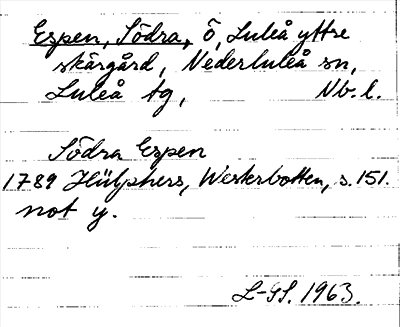 Espen, Södra, ö, Luleå yttre
skärgård, Nederluleå sn,
Luleå tg, Nb. l.
Södra Espen
1789 Hülphers, Westerbotten, s. 151.
not y.
L-GS. 1963.